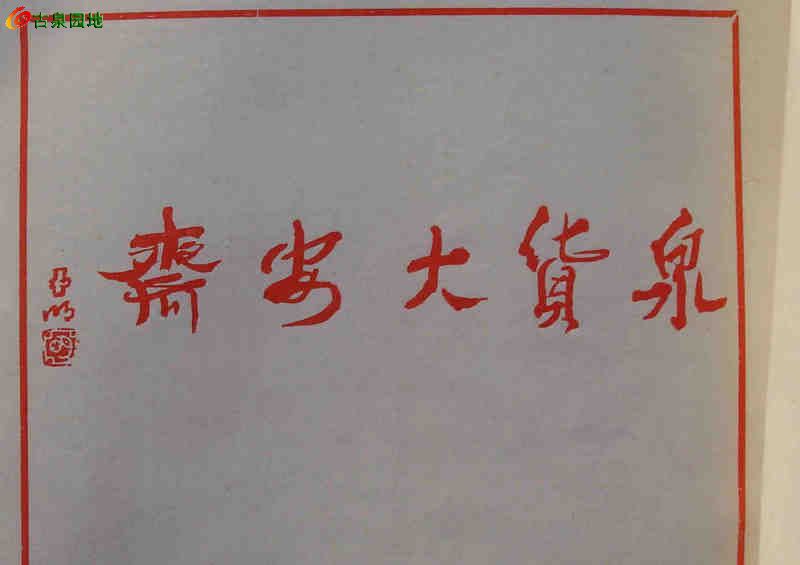 古泉园地
泉貨大安齋
亞明